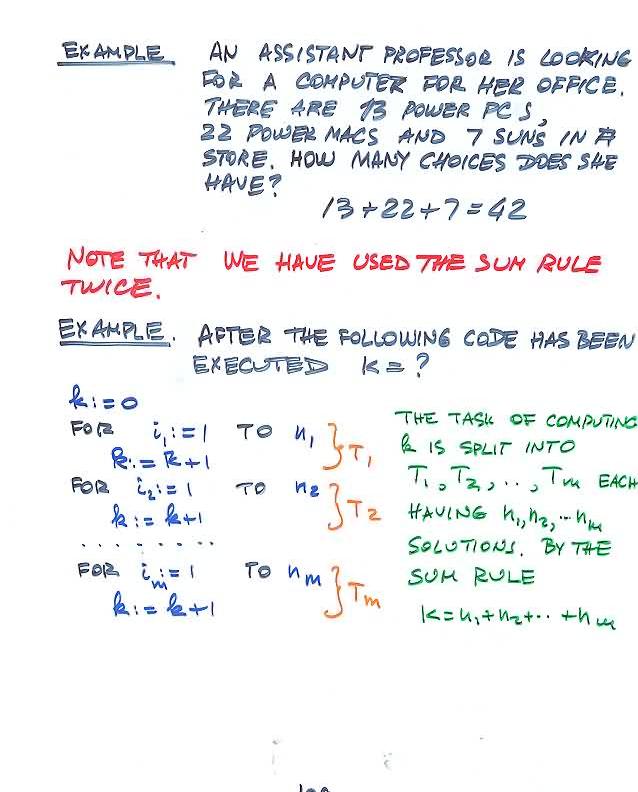 EXAMPLE AN ASSISTANT PROFESSOR IS LOOKING
FOR A COMPUTER FOR HER OFFICE.
THERE ARE 13 POWER PCS,
22 POWER MACS AND 7 SUNS IN A
STORE. HOW MANY CHOICES DOES SHE
HAVE?
13+22+7=42
NOTE THAT WE HAVE USED THE SUM RULE
TWICE.
EXAMPLE. AFTER THE FOLLOWING CODE HAS BEEN
EXECUTED K=?
k:=0
FOR i₁:=1 TO n₁
k:=k+1
} T₁
FOR i₂:=1 TO n₂
k:=k+1
} T₂
.........
FOR iₘ:=1 TO nₘ
k:=k+1
} Tₘ
THE TASK OF COMPUTING
k IS SPLIT INTO
T₁, T₂, .., Tₘ EACH
HAVING n₁,n₂,..nₘ
SOLUTIONS. BY THE
SUM RULE
K=n₁+n₂+..+nₘ